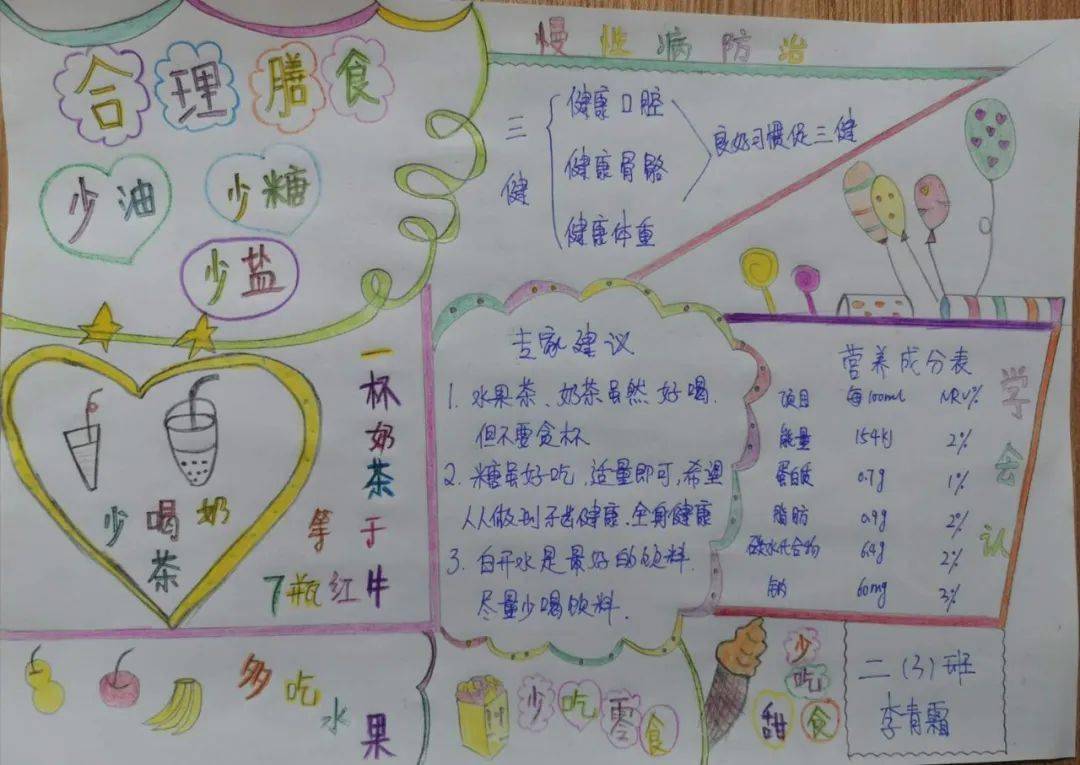 合理膳食
少油
少糖
少盐
慢性病防治
三健
健康口腔
健康骨骼
健康体重
良好习惯促三健
少喝奶茶
一杯奶茶
等于
7瓶红牛
专家建议
1. 水果茶、奶茶虽然好喝.
但不要贪杯
2. 糖虽好吃,适量即可,希望
人人做到牙齿健康.全身健康
3. 白开水是最好的饮料.
尽量少喝饮料.
学会认
营养成分表
项目 每100ml NRV%
能量 154kJ 2%
蛋白质 0.7g 1%
脂肪 0.9g 2%
碳水化合物 6.4g 2%
钠 60mg 3%
多吃水果
少吃零食
少吃甜食
二(3)班
李青霜